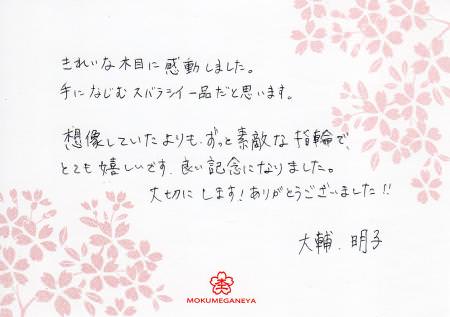 きれいな木目に感動しました。
手になじむスバラシイ一品だと思います。
想像していたよりも、ずっと素敵な指輪で、
とても嬉しいです、良い記念になりました。
大切にします!ありがとうございました!!
大輔、明子
MOKUMEGANEYA